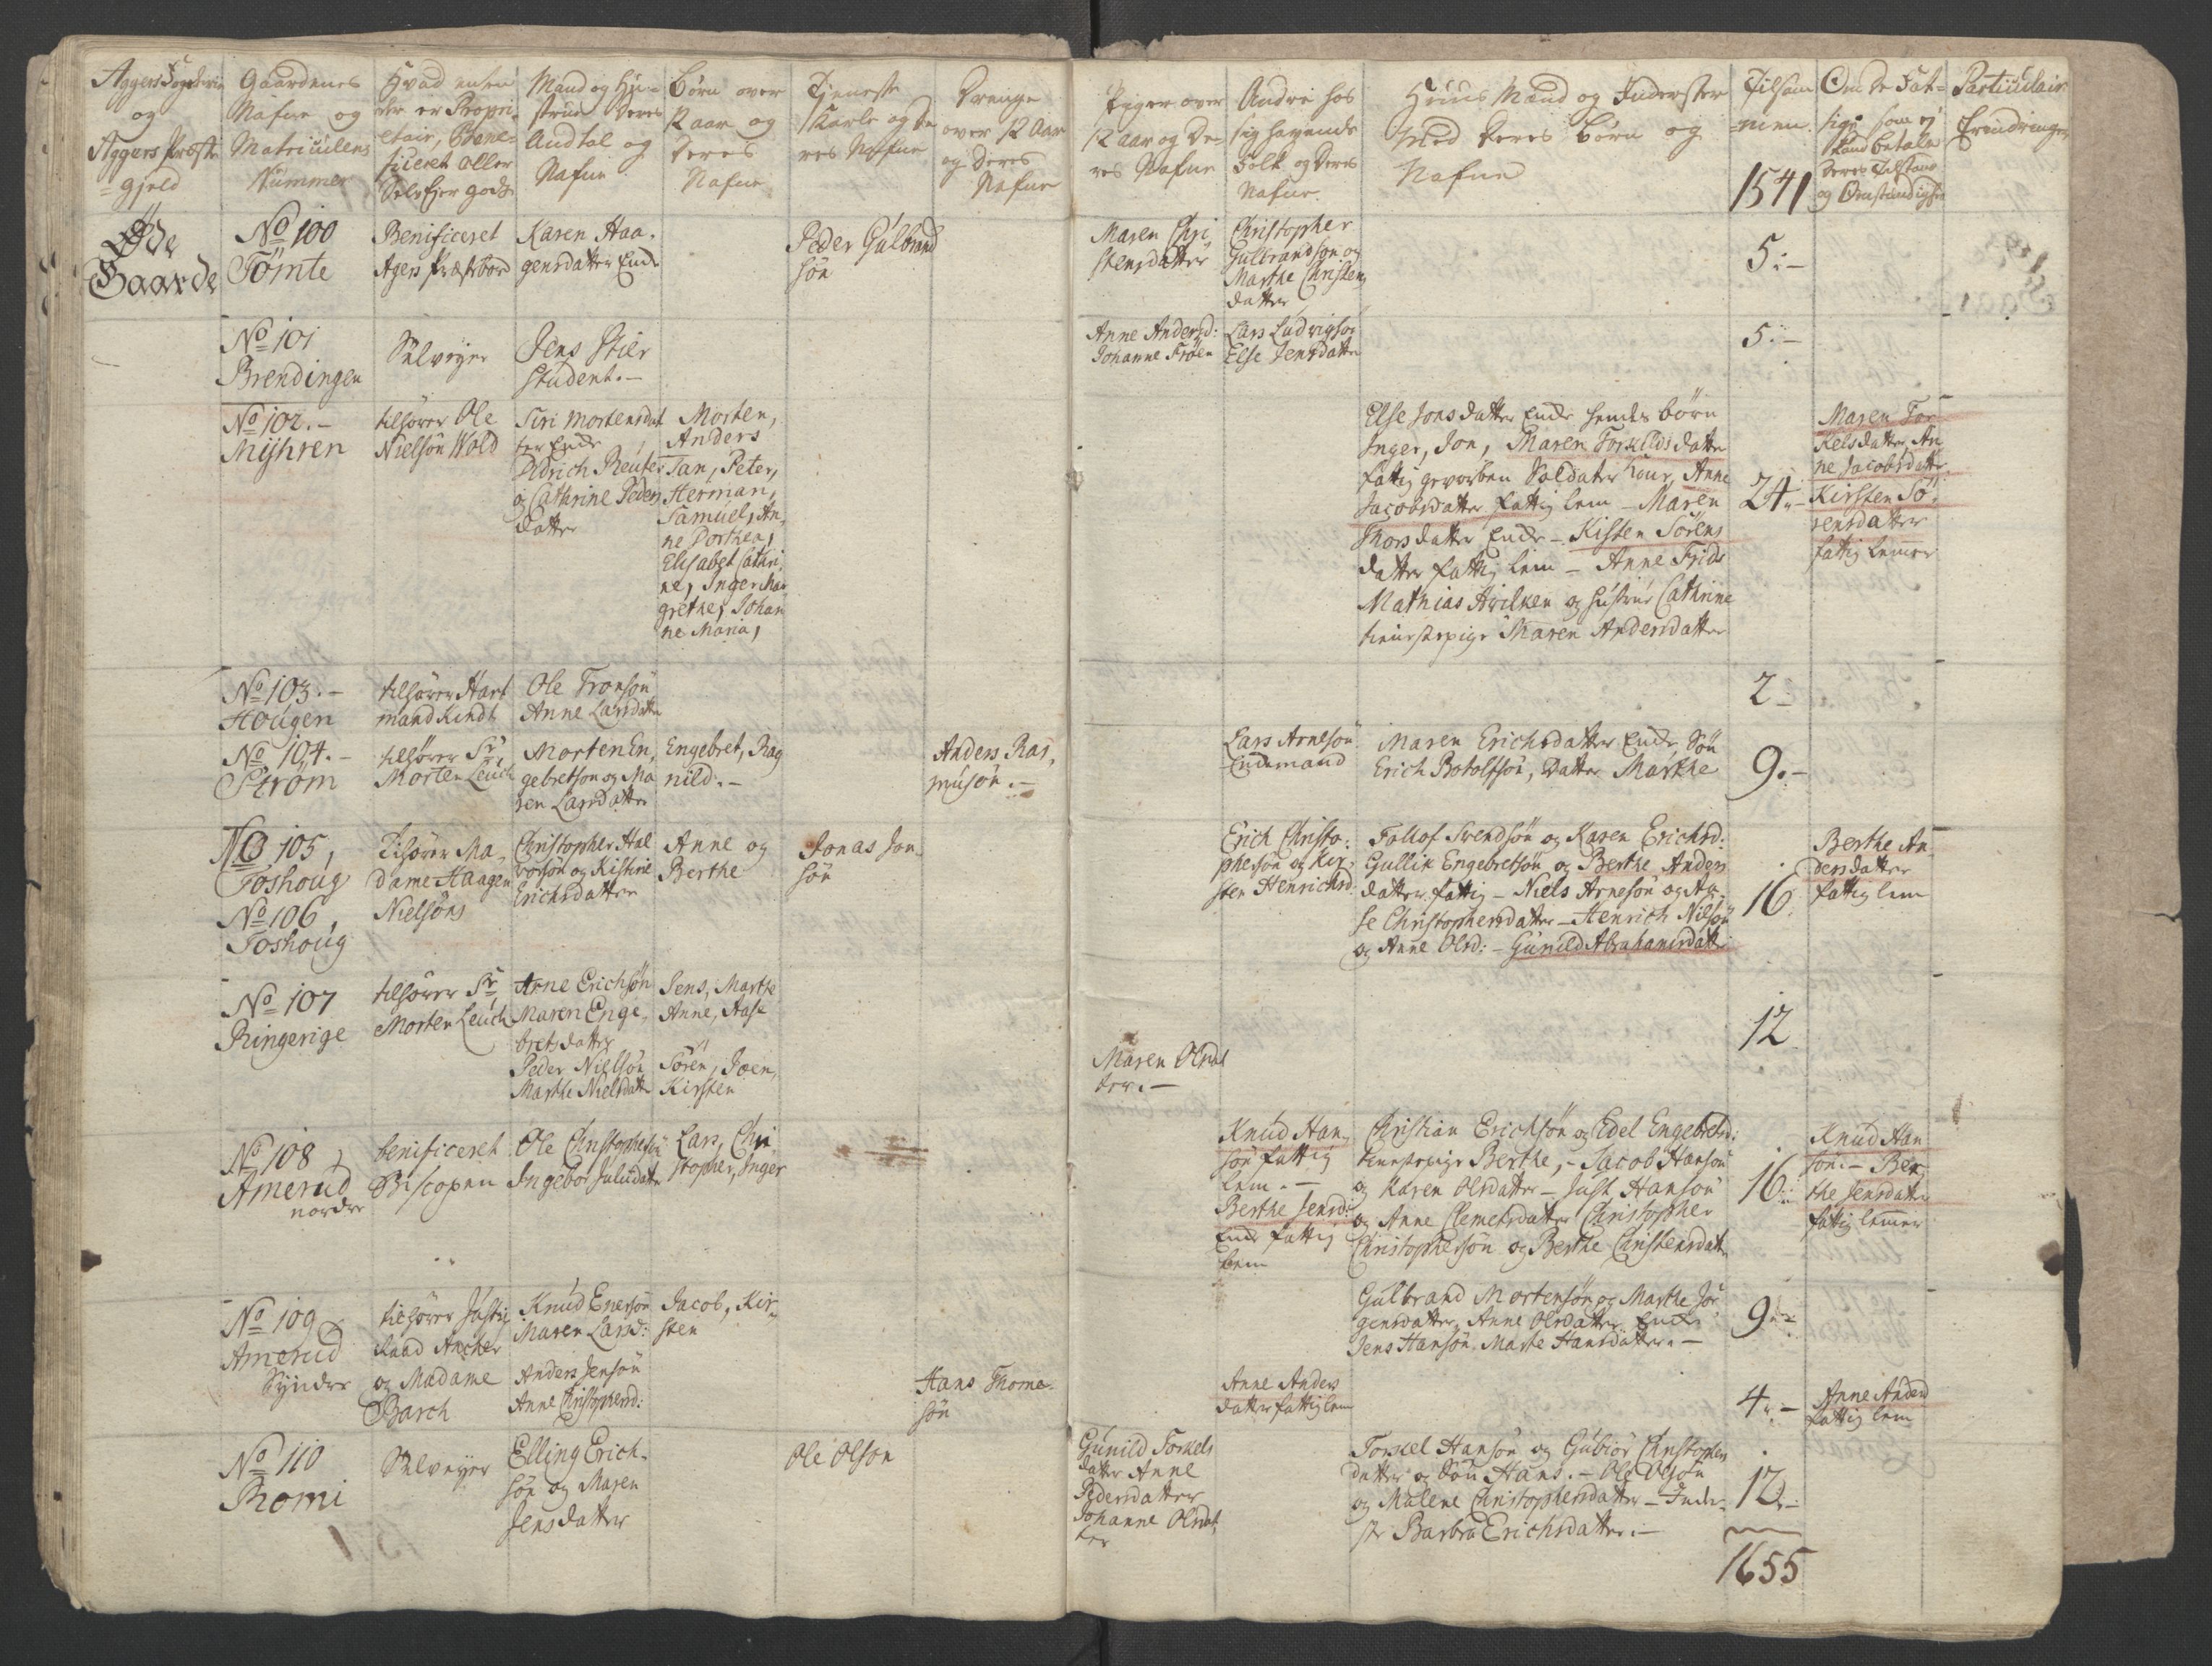 Aggers Fogderie
og
Aggers Præste
=gield
Gaardenes
Nafne og
Matriculens
Nummer
Hvad enten
der er Propri
etair, Bene-
ficeret eller
Selv Ejer gods
Mand og Hu-
strue Deres
Andtal og
Nafne
Børn over
12 aar og
Deres
Nafne
Tjeneste
Karle og De
res Nafne
Drenge
over 12 Aar
og Deres
Nafne
Piger over
12 aar og De-
res Nafne
Andre hos
sig havende
Folk og Deres
Nafne
Huus Mænd og Inderster
Med Deres Børn og
Nafne
Tilsam
=men
1541
Om De Fat-
tige som ej
Kand betale
Deres Tilstand
og Omstændighe
Particulair
Erindringer
Øde
Gaarde
No 100
Tömte
Benificeret
Agers Præstebord
Karen Haa-
gensdatter Enke
Peder Gulbrand
sön
Maren Chri
stensdatter
Christopher
Gulbrandsøn og
Marthe Christens
datter
5.-
No 101
Brendingen
Sælvejer
Jens Stier
Student.-
Anne Andersd:
Johanne Frøen
Lars Ludvigsøn
Else Jensdatter
5.-
No 102.-
Myhren
tilhører Ole
Nielsön Wold
Siri Mortensdat
ter Enke
Didrich Reuter
og Cathrine Peders
datter
Morten,
Anders
Jan, Peter,
Herman,
Samuel, An-
ne Dorthea,
Elisabet Cathri
ne, Inger Mar
grethe, Johan
ne Maria,
Else Jonsdatter Enke hendes börn
Inger, Jon, Maren Torkildsdatter
fattig gevorben Soldater kone, Anne
Jacobsdatter fattig lem - Maren
Thorsdatter Enke - Kisten Sörens
datter fattig lem - Anne Frids
Mathias Arilken og hustrue Cathrine
tieneste pige Maren Andersdatter
24.-
Maren Tor
kelsdatter, An
ne Jacobsdatter
Kirsten Sö-
rensdatter
fattig lemmer
No 103.-
Hougen
tilhører Hart
mand Kindt
Ole Tronsön
Anne Larsdatter
2-
No 104.-
Ström
tilhører Sr
Morten Leuch
Morten En-
gebretsøn og Ma
ren Larsdatter
Engebret, Rag
nild.-
Anders Ras-
musön.-
Lars Arnesön
Enkemand
Maren Erichsdatter Enke, Sön
Erich Botolfsön, Datter Marthe
9.-
No 105,
Foshoug
No 106,
Foshoug
Tilhører Ma-
dame Haagen
Nielsöns
Christopher Hal
vorsøn og Kistine
Erichsdatter
Anne og
Berthe
Jonas Jon-
sön
Erich Christo-
phersøn og Kir-
sten Henrichsd:
Follof Svendsön og Karen Erichsd:
Gullik Engebretsön og Berthe Anders
datter fattig - Niels Arnesön og Aa-
se Christophersdatter - Henrich Nilsön
og Anne Olsd: - Gunild Abrahamsdatter
16.
Berthe An
dersdatter
fattig lem
No 107
Ringerige
tilhører Sr
Morten Leuch
Arne Erichsön
Maren Enge-
bretsdatter
Peder Nielsön
Marthe Nielsdatter
Jens, Marthe
Anne, Aase
Sören, Joen,
Kirsten
Maren Olsdat
ter.-
12
No 108,
Amerud
nordre
benificeret
Biscopen
Ole Christophersön
Ingebor Juludatter
Lars, Chri
stopher, Inger
Knud Han-
sön fattig
lem.-
Berthe Jensd:
Enke fattig
lem
Christian Erichsön og Edel Engebretsd:
tieneste pige Berthe, - Jacob Hansön
og Karen Olsdatter - Just Hansön
og Anne Clemetsdatter Christopher
Christophersön og Berthe Christensdatter
16.-
Knud Han
sön.- Ber
the Jensdatter
fattig lemmer
No 109
Amerud
Syndre
tilhører Justis
Raad Ancher
og Madame
Barch
Knud Enersön
Maren Larsd:
Anders Jensön
Anne Christophersd:
Jacob, Kir-
sten
Hans Thome-
sön
Anne Anders
datter fattig lem
Gulbrand Mortensön og Marthe Jör
gensdatter, Anne Olsdatter Enke
Jens Hansön, Marte Hansdatter.-
9.-
4.-
Anne Andersd
fattig lem
No 110
Romi
Sælvejer
Elling Erich-
sön og Maren
Jensdatter
Ole Olsøn
Gunild Torkels
datter Anne
Pedersdatter
Johanne Olsdat
ter
Torkel Hansön og Gubiör Christophers
datter og Sön Hans. - Ole Olsön
og Malene Christophersdatter - Inder-
ste Barbra Erichsdatter.-
12.-
1655